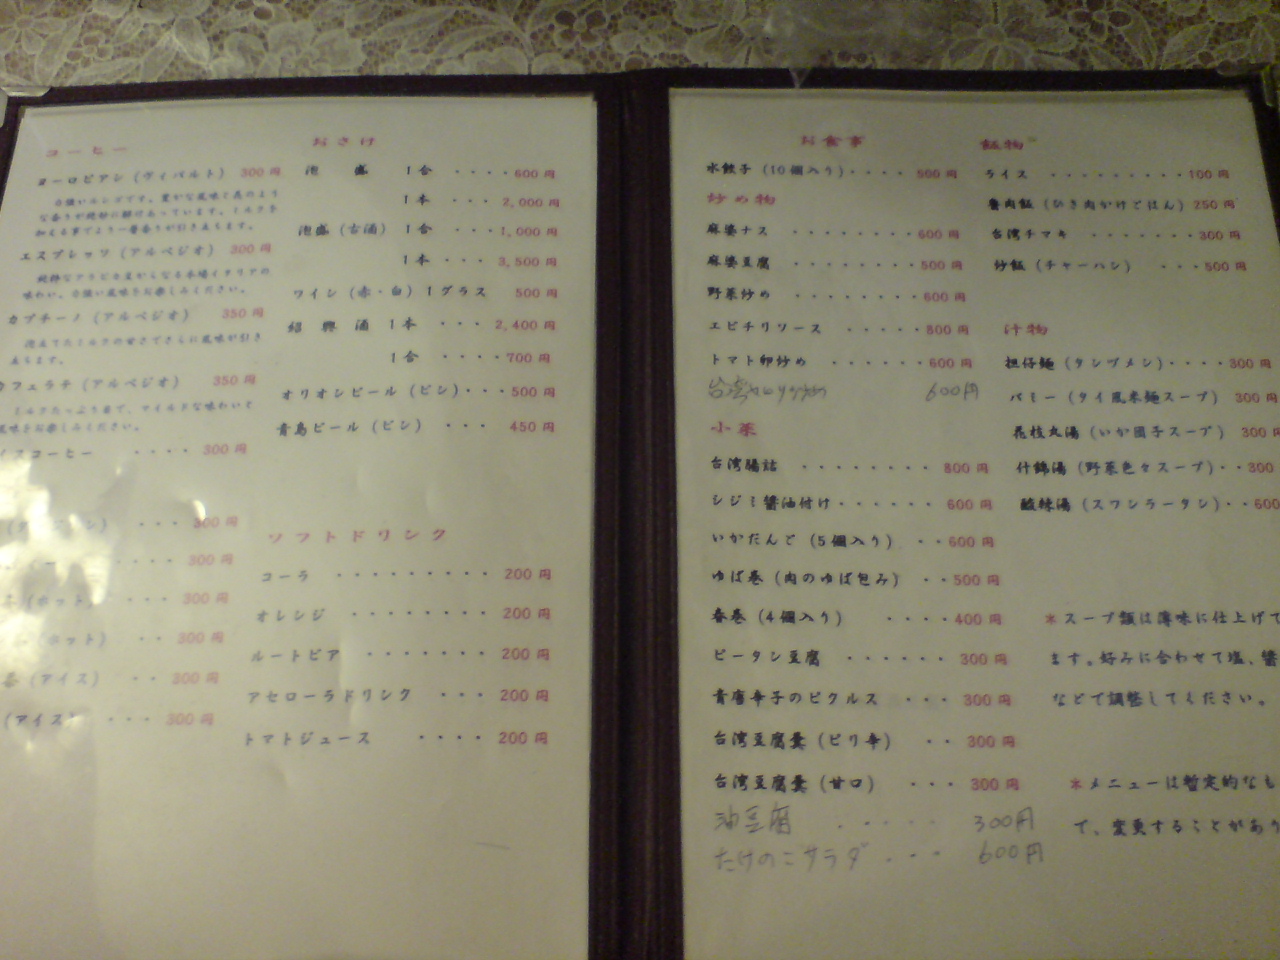 コーヒー
ヨーロピアン (ヴィバルト) 300円
エスプレッソ (アルペジオ) 300円
純粋なアラビカ豆からなる本場イタリアの
味わい、力強い風味をお楽しみください。
カプチーノ (アルペジオ) 350円
カフェラテ (アルペジオ) 350円
ミルクたっぷりで、マイルドな味わいと
風味をお楽しみください。
イスコーヒー ・・・ 300円
・・・ 300円
・・・ 300円
(ホット) ・・・ 300円
(ホット) ・・ 300円
茶 (アイス) ・・ 300円
(アイス) ・・・ 300円
おさけ
泡盛 1合 ・・・・・600円
1本 ・・・ 2,000円
泡盛 (古酒) 1合 ・・・・1,000円
1本 ・・・ 3,500円
ワイン (赤・白) 1グラス 500円
紹興酒 1本 ・・・ 2,400円
1合 ・・・・700円
オリオンビール (ビン)・・・500円
青島ビール (ビン) ・・・ 450円
ソフトドリンク
コーラ ・・・・・・・・ 200円
オレンジ ・・・・・・・・ 200円
ルートビア ・・・・・・・ 200円
アセローラドリンク ・・・ 200円
トマトジュース ・・・・ 200円
お食事
水餃子 (10個入り)・・・・ 500円
炒め物
麻婆ナス ・・・・・・・・600円
麻婆豆腐 ・・・・・・・・500円
野菜炒め ・・・・・・・・600円
エビチリソース ・・・・・800円
トマト卵炒め ・・・・・・600円
600円
小菜
台湾腸詰 ・・・・・・・・ 800円
シジミ醤油付け・・・・・・ 600円
いかだんご (5個入り) ・・600円
ゆば巻 (肉のゆば包み) ・・500円
春巻 (4個入り) ・・・・400円
ピータン豆腐 ・・・・・・ 300円
青唐辛子のピクルス ・・・ 300円
台湾豆腐羹 (ピリ辛) ・・ 300円
台湾豆腐羹 (甘口) ・・・ 300円
油豆腐 ・・・・・ 300円
たけのこサラダ ・・・ 600円
飯物
ライス ・・・・・・・・・100円
魯肉飯 (ひき肉かけごはん) 250円
台湾チマキ ・・・・・・・300円
炒飯 (チャーハン) ・・・500円
汁物
担仔麺 (タンツメン)・・・・300円
バミー (タイ風米麺スープ) 300円
花枝丸湯 (いか団子スープ) 300円
什錦湯 (野菜色々スープ)・・300
酸辣湯 (スワンラータン)・・600
*スープ類は薄味に仕上げて
ます。好みに合わせて塩、醤
などで調整してください。
*メニューは暫定的なも
で、変更することがあり